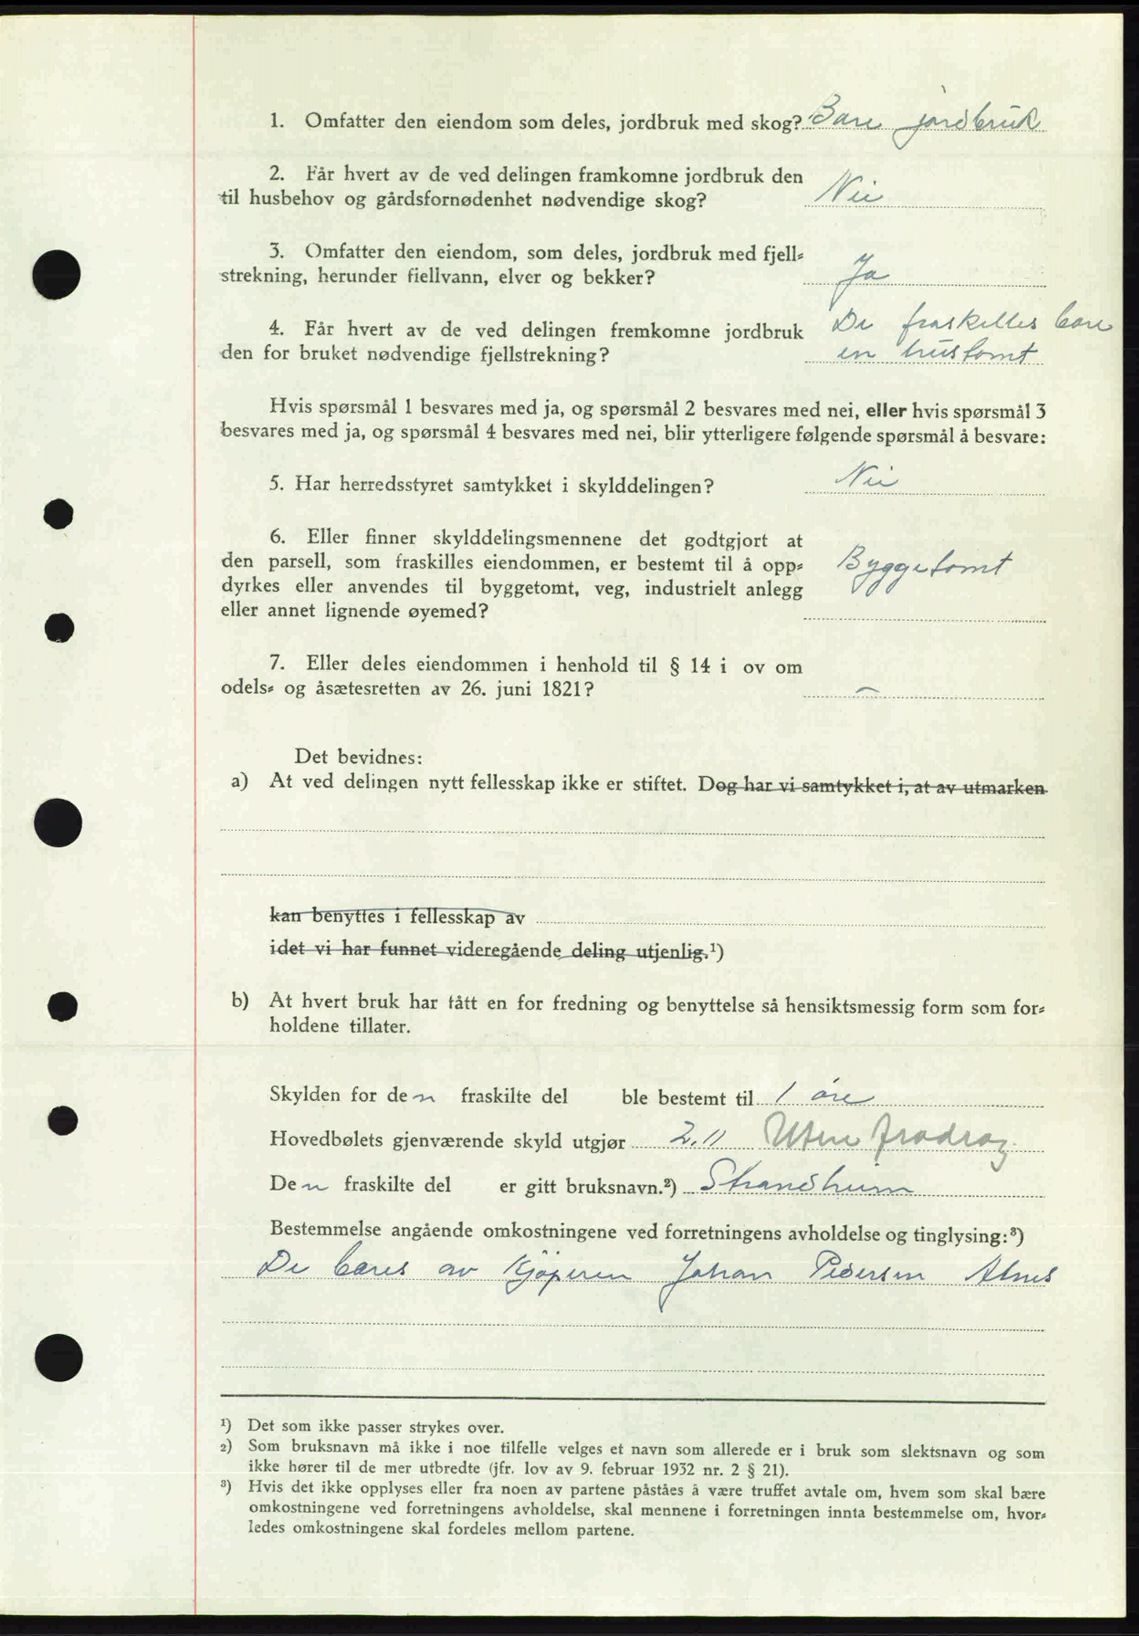 1. Omfatter den eiendom som deles, jordbruk med skog? Bare jordbruk
2. Får hvert av de ved delingen framkomne jordbruk den
til husbehov og gårdsfornødenhet nødvendige skog? Nei
3. Omfatter den eiendom, som deles, jordbruk med fjell=
strekning, herunder fiellvann, elver og bekker? Ja
4. Får hvert av de ved delingen fremkomne jordbruk De fraskilles bare
den for bruket nødvendige fjellstrekning? en hustomt
Hvis spørsmål 1 besvares med ja, og spørsmål 2 besvares med nei, eller hvis spørsmål 3
besvares med ja, og spørsmål 4 besvares med nei, blir ytterligere følgende spørsmål å besvare:
5. Har herredsstyret samtykket i skylddelingen? Nei
6. Eller finner skylddelingsmennene det godtgjort at
den parsell, som fraskilles eiendommen, er bestemt til å opp= Byggetomt
dyrkes eller anvendes til byggetomt, veg, industrielt anlegg
eller annet lignende øyemed?
7. Eller deles eiendommen i henhold til § 14 i ov om
odels= og åsætesretten av 26. juni 1821? –
Det bevidnes:
a) At ved delingen nytt fellesskap ikke er stiftet. Dog har vi samtykket i, at av utmarken
kan benyttes i fellesskap av
idet vi har funnet videregående deling utjenlig.¹)
b) At hvert bruk har fått en for fredning og benyttelse så hensiktsmessig form som for=
holdene tillater.
Skylden for den fraskilte del ble bestemt til 1 øre
Hovedbølets gjenværende skyld utgjør 2.11 Uten fradrag.
Den fraskilte del er gitt bruksnavn.²) Strandheim
Bestemmelse angående omkostningene ved forretningens avholdelse og tinglysing:³)
De bæres av Kjøperen Johan Pedersen Alnes
¹) Det som ikke passer strykes over.
²) Som bruksnavn må ikke i noe tilfelle velges et navn som allerede er i bruk som slektsnavn og som
ikke hører til de mer utbredte (jfr. lov av 9. februar 1932 nr. 2 § 21).
³) Hvis det ikke opplyses eller fra noen av partene påståes å være truffet avtale om, hvem som skal bære
omkostningene ved forretningens avholdelse, skal mennene i forretningen innta bestemmelse om, hvor=
ledes omkostningene skal fordeles mellom partene.